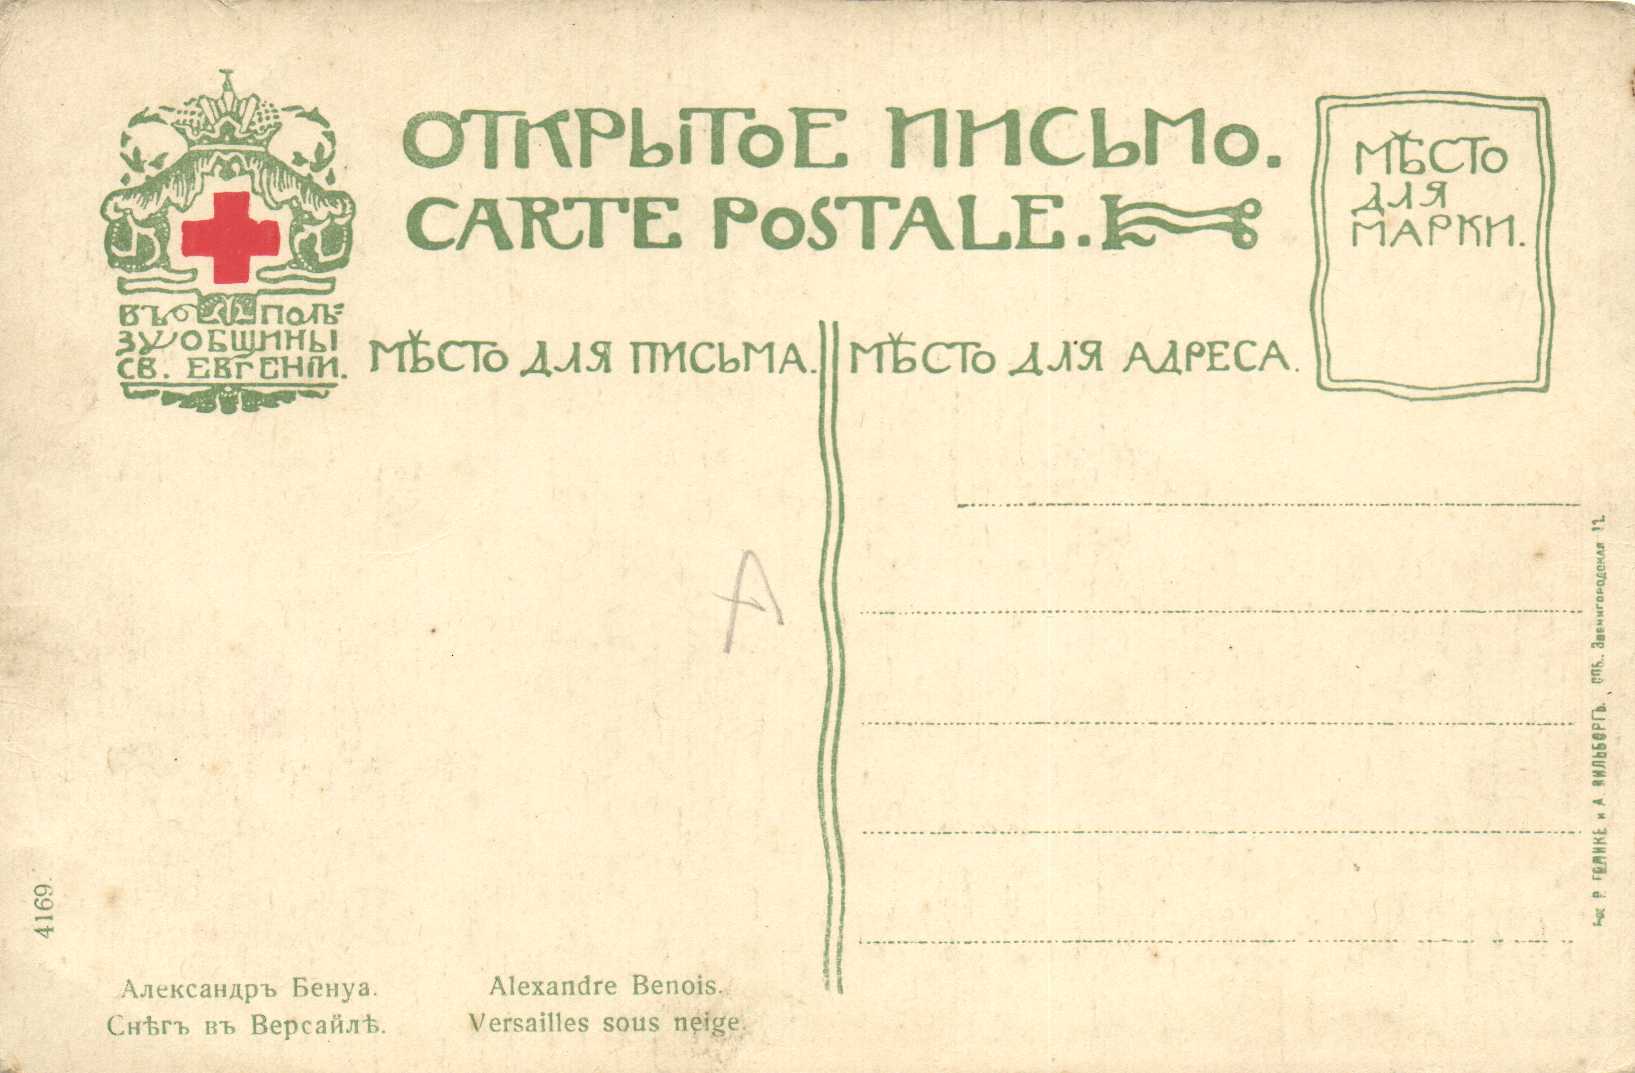 ОТКРЫТОЕ ПИСЬМО.
CARTE POSTALE.
МѢСТО
ДЛЯ
МАРКИ.
ВЪ ПОЛЬ-
ЗУ ОБЩИНЫ
СВ. ЕВГЕНІИ.
МѢСТО ДЛЯ ПИСЬМА.
МѢСТО ДЛЯ АДРЕСА.
А
Р. ГОЛИКЕ и А. ВИЛЬБОРГЪ, СПБ. Звенигородская 11.
4169.
Александръ Бенуа.
Снѣгъ въ Версайлѣ.
Alexandre Benois.
Versailles sous neige.